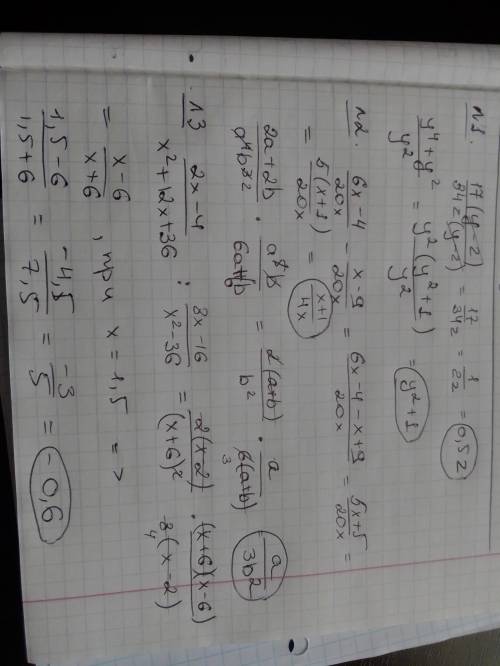 №1. 17(y-z)/34z(y-z) = 17/34z = 1/2z = 0,5z
y⁴+y²/y² = y²(y²+1)/y² = y²+1
№2. 6x-4/20x - x-9/20x = 6x-4-x+9/20x = 5x+5/20x =
= 5(x+1)/20x = x+1/4x
2a+2b/a⁴b³ · a⁵b/6a+6b = 2(a+b)/b² · a/6(a+b) a/3b²
№3 2x-4/x²+12x+36 : 8x-16/x²-36 = 2(x-2)/(x+6)² · (x+6)(x-6)/8(x-2)
= x-6/x+6, при x=1,5 =>
1,5-6/1,5+6 = -4,5/7,5 = -3/5 = -0,6